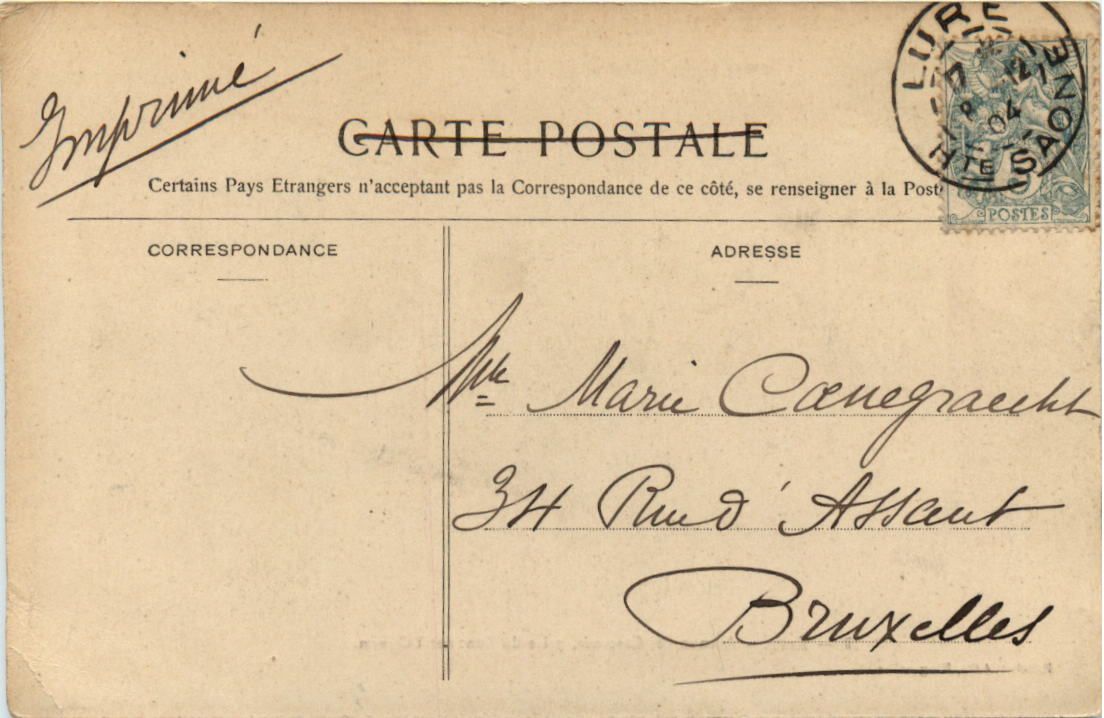 Imprimé
CARTE POSTALE
Certains Pays Etrangers n'acceptant pas la Correspondance de ce côté, se renseigner à la Post
LURE
12
04
HTE SAONE
POSTES
CORRESPONDANCE
ADRESSE
Mlle Marie Coenegracht
34 Rue d'Assaut
Bruxelles